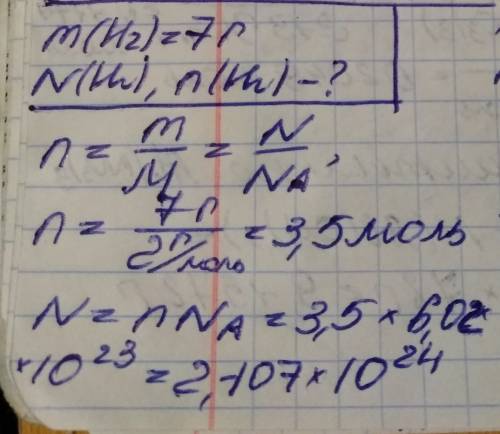 m(H₂)=7г
N(H₂), n(H₂)-?
n = m/M = N/Nᴀ;
n = 7г/2г/моль = 3,5 моль
N = nNᴀ = 3,5 × 6,02 ×
×10²³ = 2,107×10²⁴